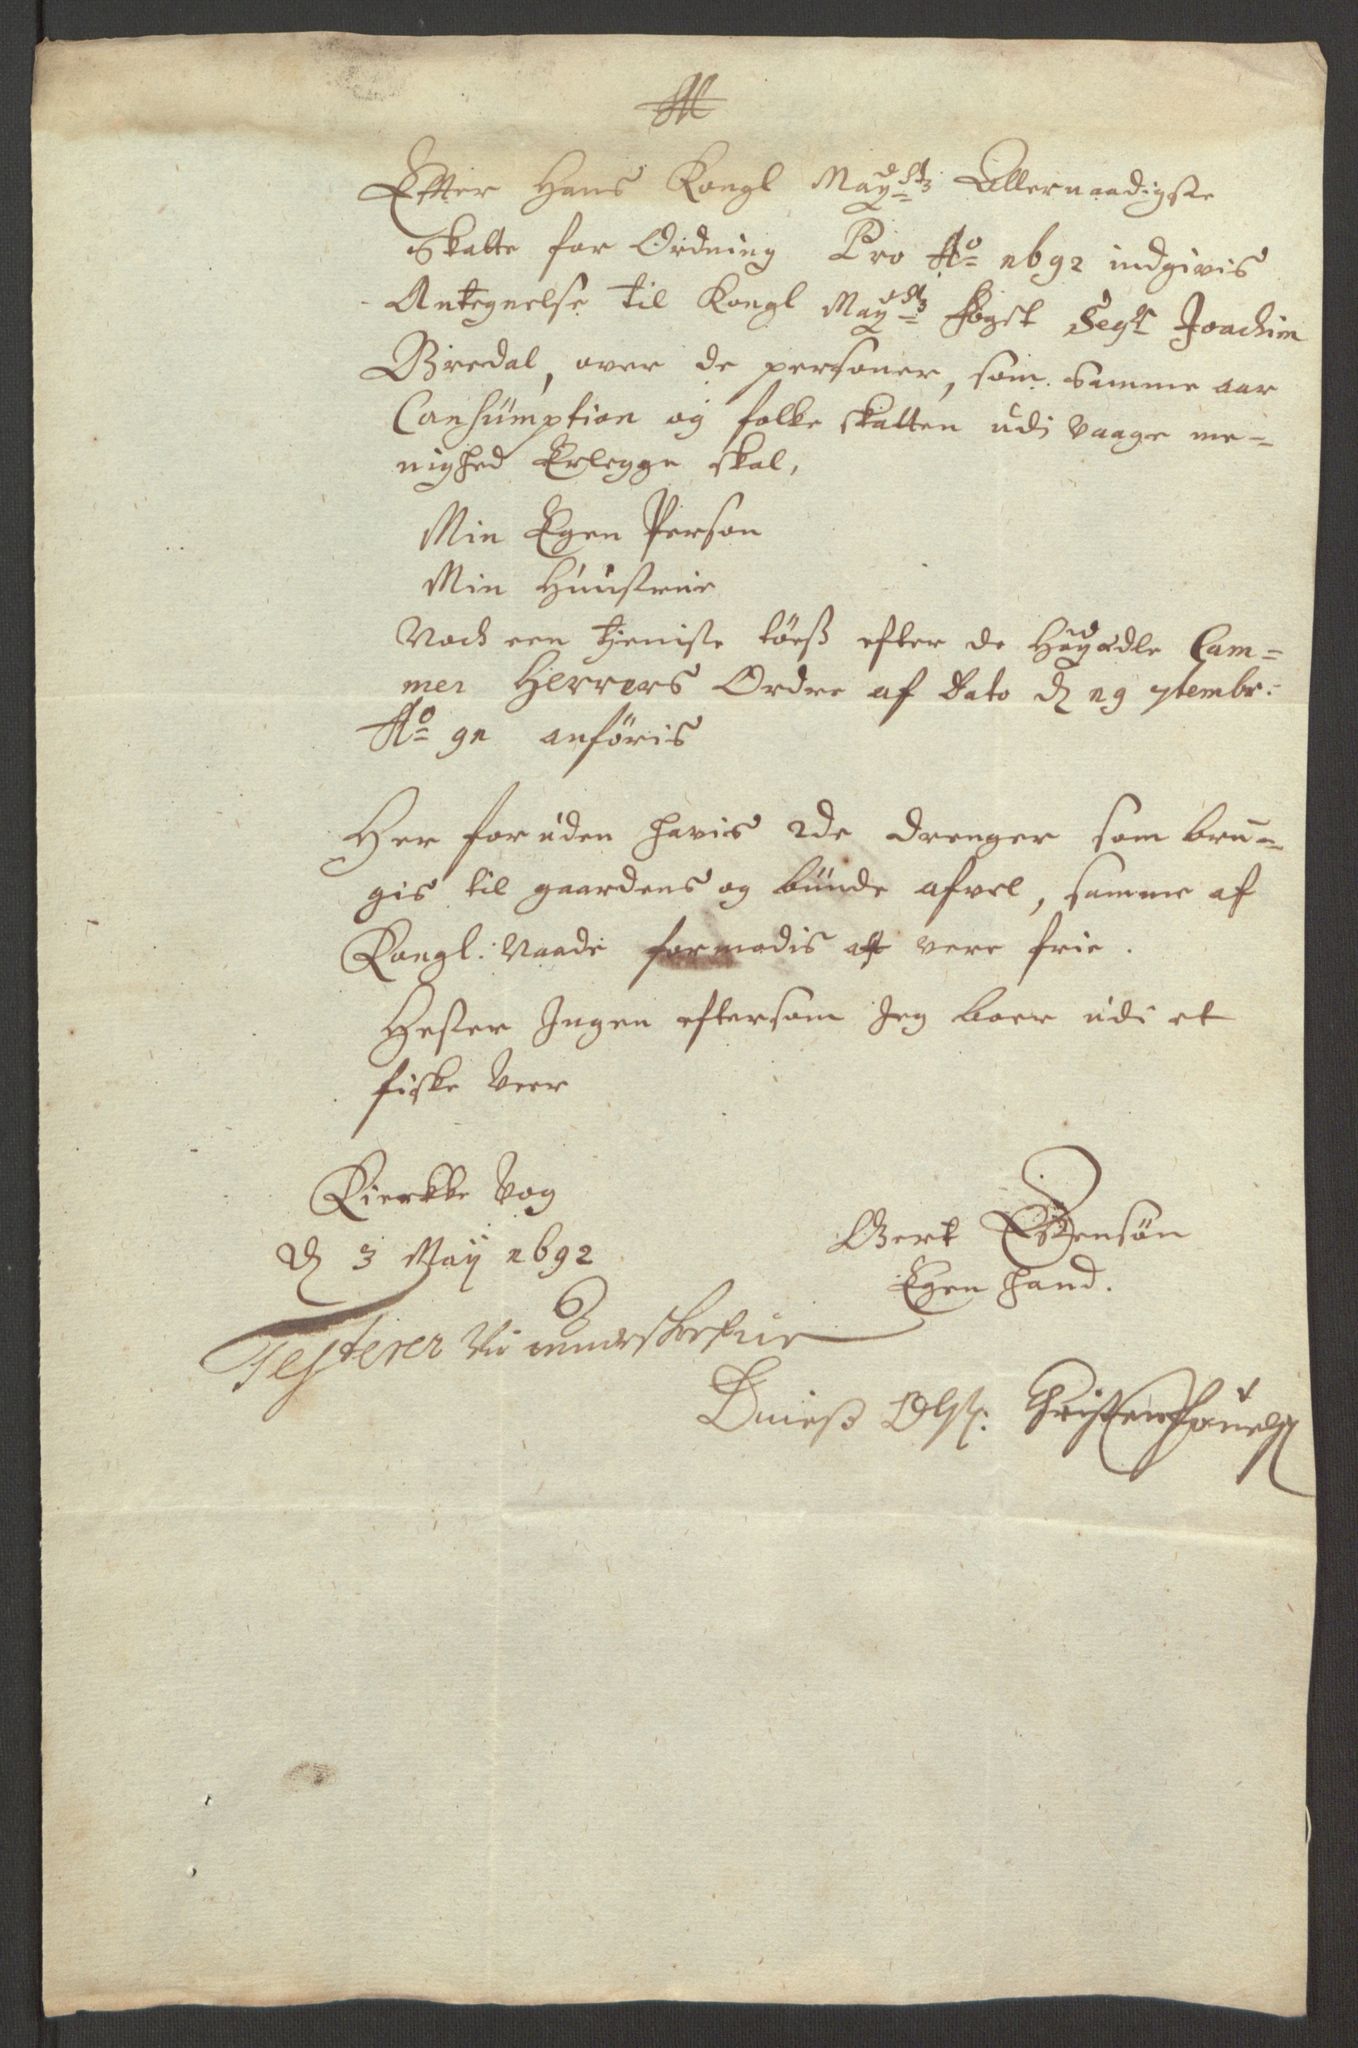 Effter Hans Kongl Mayst: Allernaadigste
Skatte for Ordning Pro Ao 1692 indgivis
Antegnelse til Kongl Mayst: fogst Segr Joachim
Bredal, over de personer, som samme aar
Consumption og folke skatten udi Vaage me-
nighed Erlegge skal,
Min Egen Person
Min Huustrue
Noch een tjeniste töeß efter de Höyædle Cam-
mer Herrers Ordre af Dato d 19 7tembr:
Ao 91 anföris
Her foruden havis 2de drenger som bru-
gis til gaardens og bunde afvel, samme af
Kongl: Naade formodis at vere frie.
Hester Ingen eftersom Jeg boer udi et
fiske Veer
Kierkke Vog
d 3 May 1692
Gert Estensön
Egen hand.
Testerer Vii
Olß: Christen Pouelß